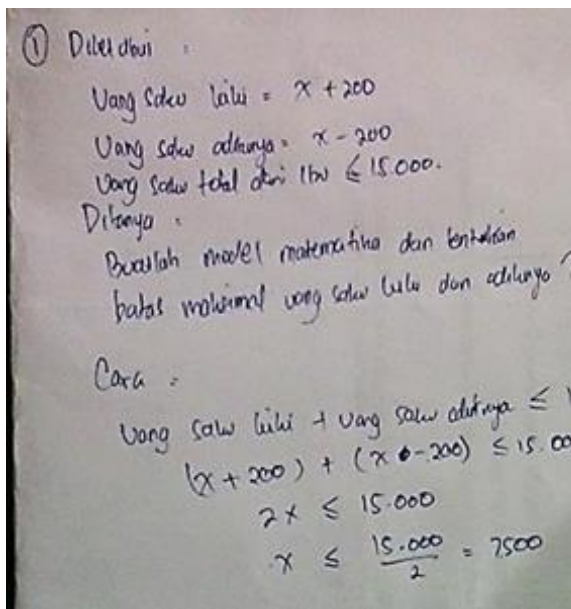 ① Diketahui :
Uang saku Lulu = x + 200
Uang saku adiknya = x - 200
Uang saku total dari Ibu ≤ 15.000.
Ditanya :
Buatlah model matematika dan tentukan
batas maksimal uang saku Lulu dan adiknya ?
Cara :
Uang saku Lulu + Uang saku adiknya ≤ 1
(x + 200) + (x - 200) ≤ 15.00
2x ≤ 15.000
x ≤ 15.000 / 2 = 7500